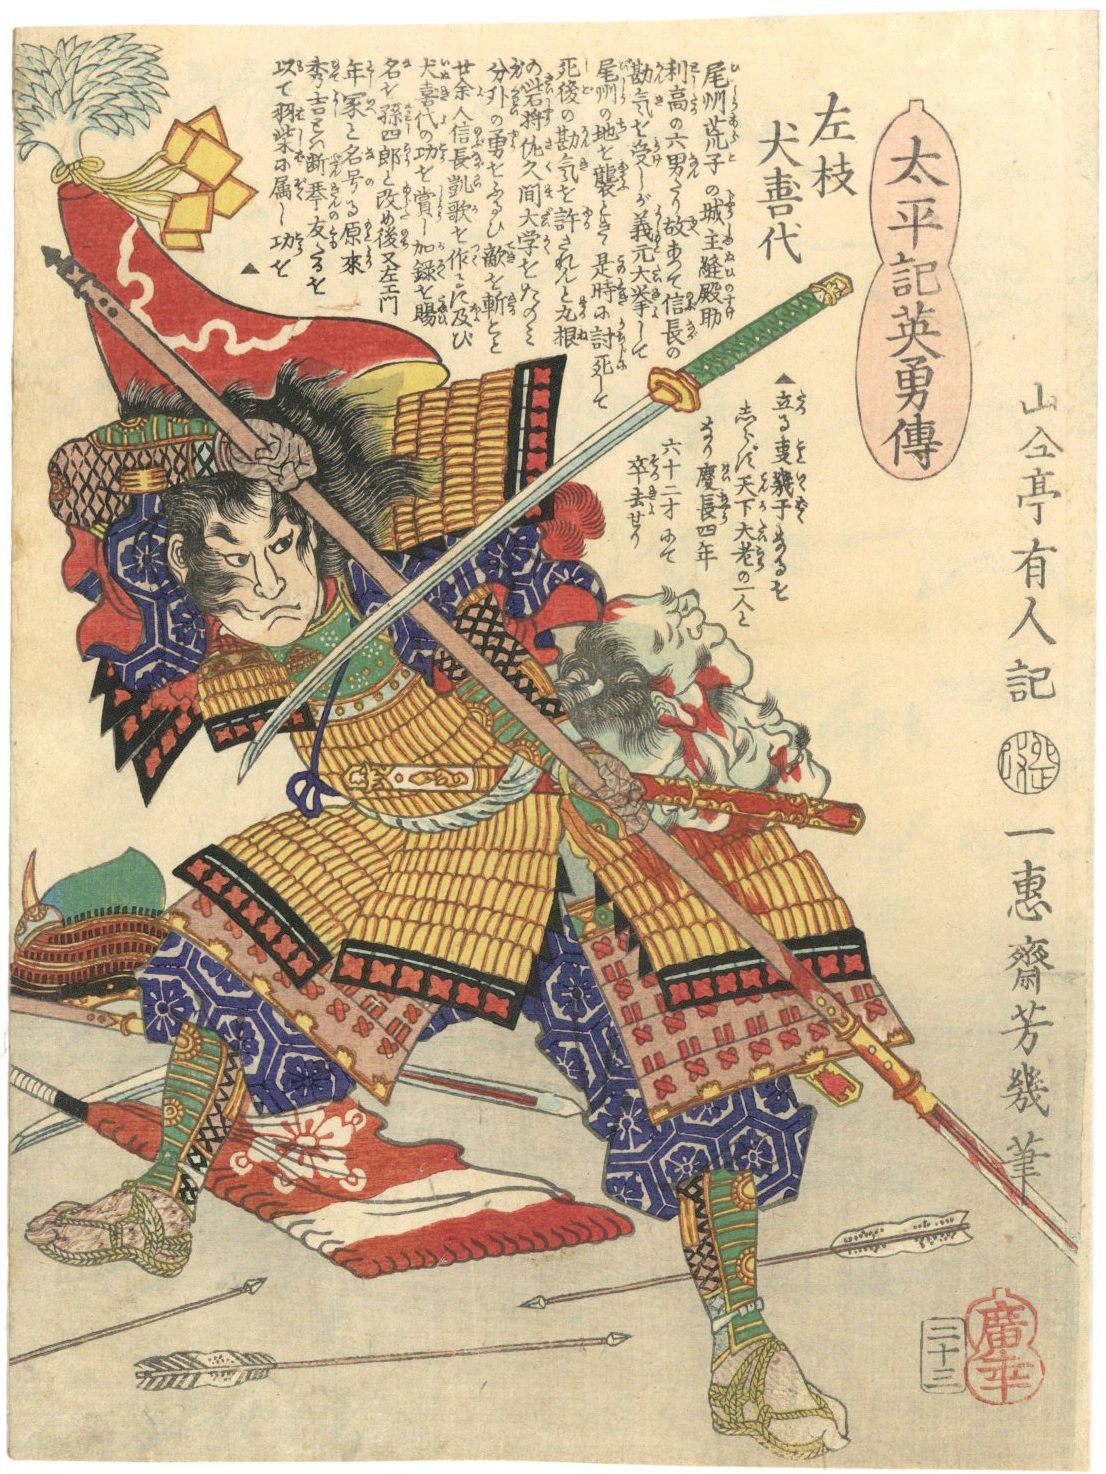 太平記英勇傳
左枝
犬喜代
尾州荒子の城主縫殿助
利高の六男たり故あつて信長の
勘気を受しが義元大挙して
尾州の地を襲とき是時に討死して
死後の勘気を許されんと丸根
の岩将佐久間大学をたのミ
分外の勇をふるひ敵を斬こと
廿余人信長凱歌を作に及び
犬喜代の功を賞し加録を賜
名を孫四郎と改め後又左エ門
年家と名号る原来
秀吉とハ断琴の友たるを
以て羽柴に属し功を▲
▲立る事幾千なるを
しらず天下大老の一人と
なり慶長四年
六十二才にて
卒去せり
山々亭有人記
一惠齋芳幾筆
二十三